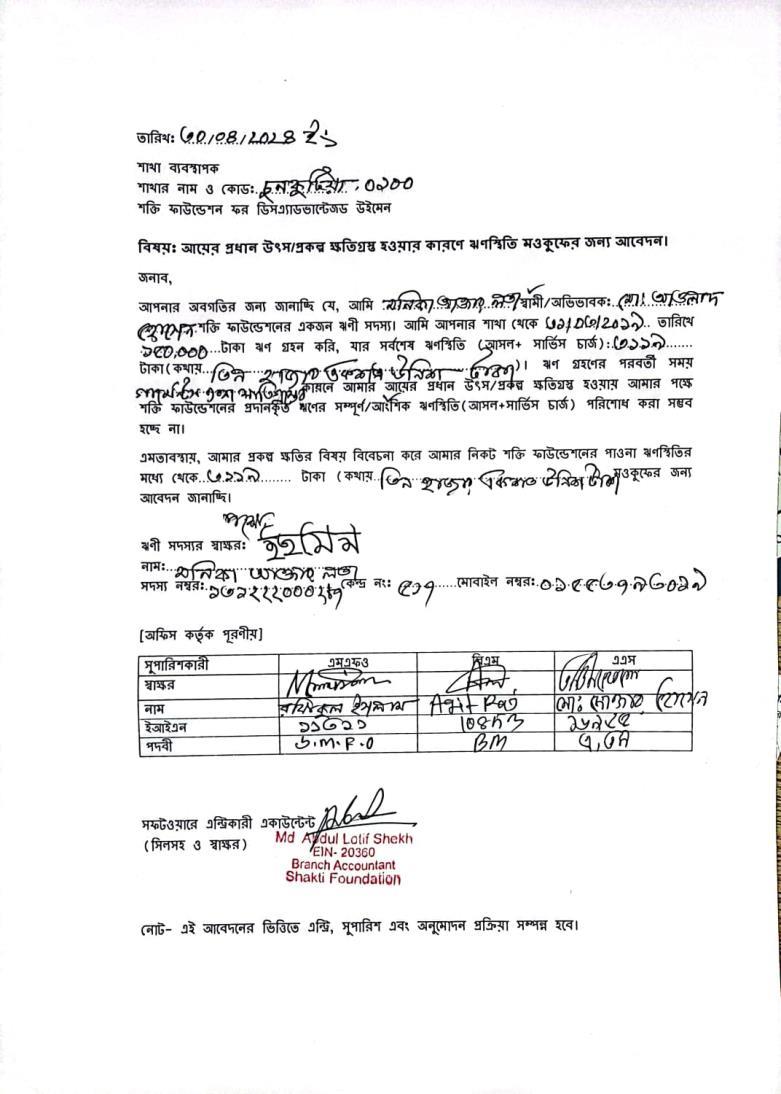 তারিখ: ৩০/০৪/২০২৪ ইং
শাখা ব্যবস্থাপক
শাখার নাম ও কোড: চুনকুটিয়া, ০১০০
শক্তি ফাউন্ডেশন ফর ডিসএ্যাডভান্টেজড উইমেন
বিষয়: আয়ের প্রধান উৎস/প্রকল্প ক্ষতিগ্রস্থ হওয়ার কারণে ঋণস্থিতি মওকুফের জন্য আবেদন।
জনাব,
আপনার অবগতির জন্য জানাচ্ছি যে, আমি মনিকা আক্তার লতা স্বামী/অভিভাবক: মো: আওলাদ
হোসেন শক্তি ফাউন্ডেশনের একজন ঋণী সদস্য। আমি আপনার শাখা থেকে তারিখে
১৫০,০০০ টাকা ঋণ গ্রহন করি, যার সর্বশেষ ঋণস্থিতি (আসল+ সার্ভিস চার্জ): ৩১১৯
টাকা (কথায় তিন হাজার একশত উনিশ টাকা)। ঋণ গ্রহণের পরবর্তী সময়
কারনে আমার আয়ের প্রধান উৎস/প্রকল্প ক্ষতিগ্রস্থ হওয়ায় আমার পক্ষে
শক্তি ফাউন্ডেশনের প্রদানকৃত ঋণের সম্পূর্ণ/আংশিক ঋণস্থিতি(আসল+সার্ভিস চার্জ) পরিশোধ করা সম্ভব
হচ্ছে না।
এমতাবস্থায়, আমার প্রকল্প ক্ষতির বিষয় বিবেচনা করে আমার নিকট শক্তি ফাউন্ডেশনের পাওনা ঋণস্থিতির
মধ্যে থেকে ৩১১৯ টাকা (কথায় তিন হাজার একশত উনিশ টাকা মওকুফের জন্য
আবেদন জানাচ্ছি।
ঋণী সদস্যর স্বাক্ষর:
নাম: মনিকা আক্তার লতা
সদস্য নম্বর: কেন্দ্র নং: ৫১৭ মোবাইল নম্বর:
[অফিস কর্তৃক পূরণীয়]
সুপারিশকারী এমএফও বিএম এএস
স্বাক্ষর
নাম রফিকুল ইসলাম Ajit Roy মো: হোসেন
ইআইএন ১১৩১১
পদবী S.M.F.O BM
সফটওয়ারে এন্ট্রিকারী একাউন্টেন্ট
(সিলসহ ও স্বাক্ষর)
Md Abdul Lotif Shekh
EIN- 20360
Branch Accountant
Shakti Foundation
নোট- এই আবেদনের ভিত্তিতে এন্ট্রি, সুপারিশ এবং অনুমোদন প্রক্রিয়া সম্পন্ন হবে।